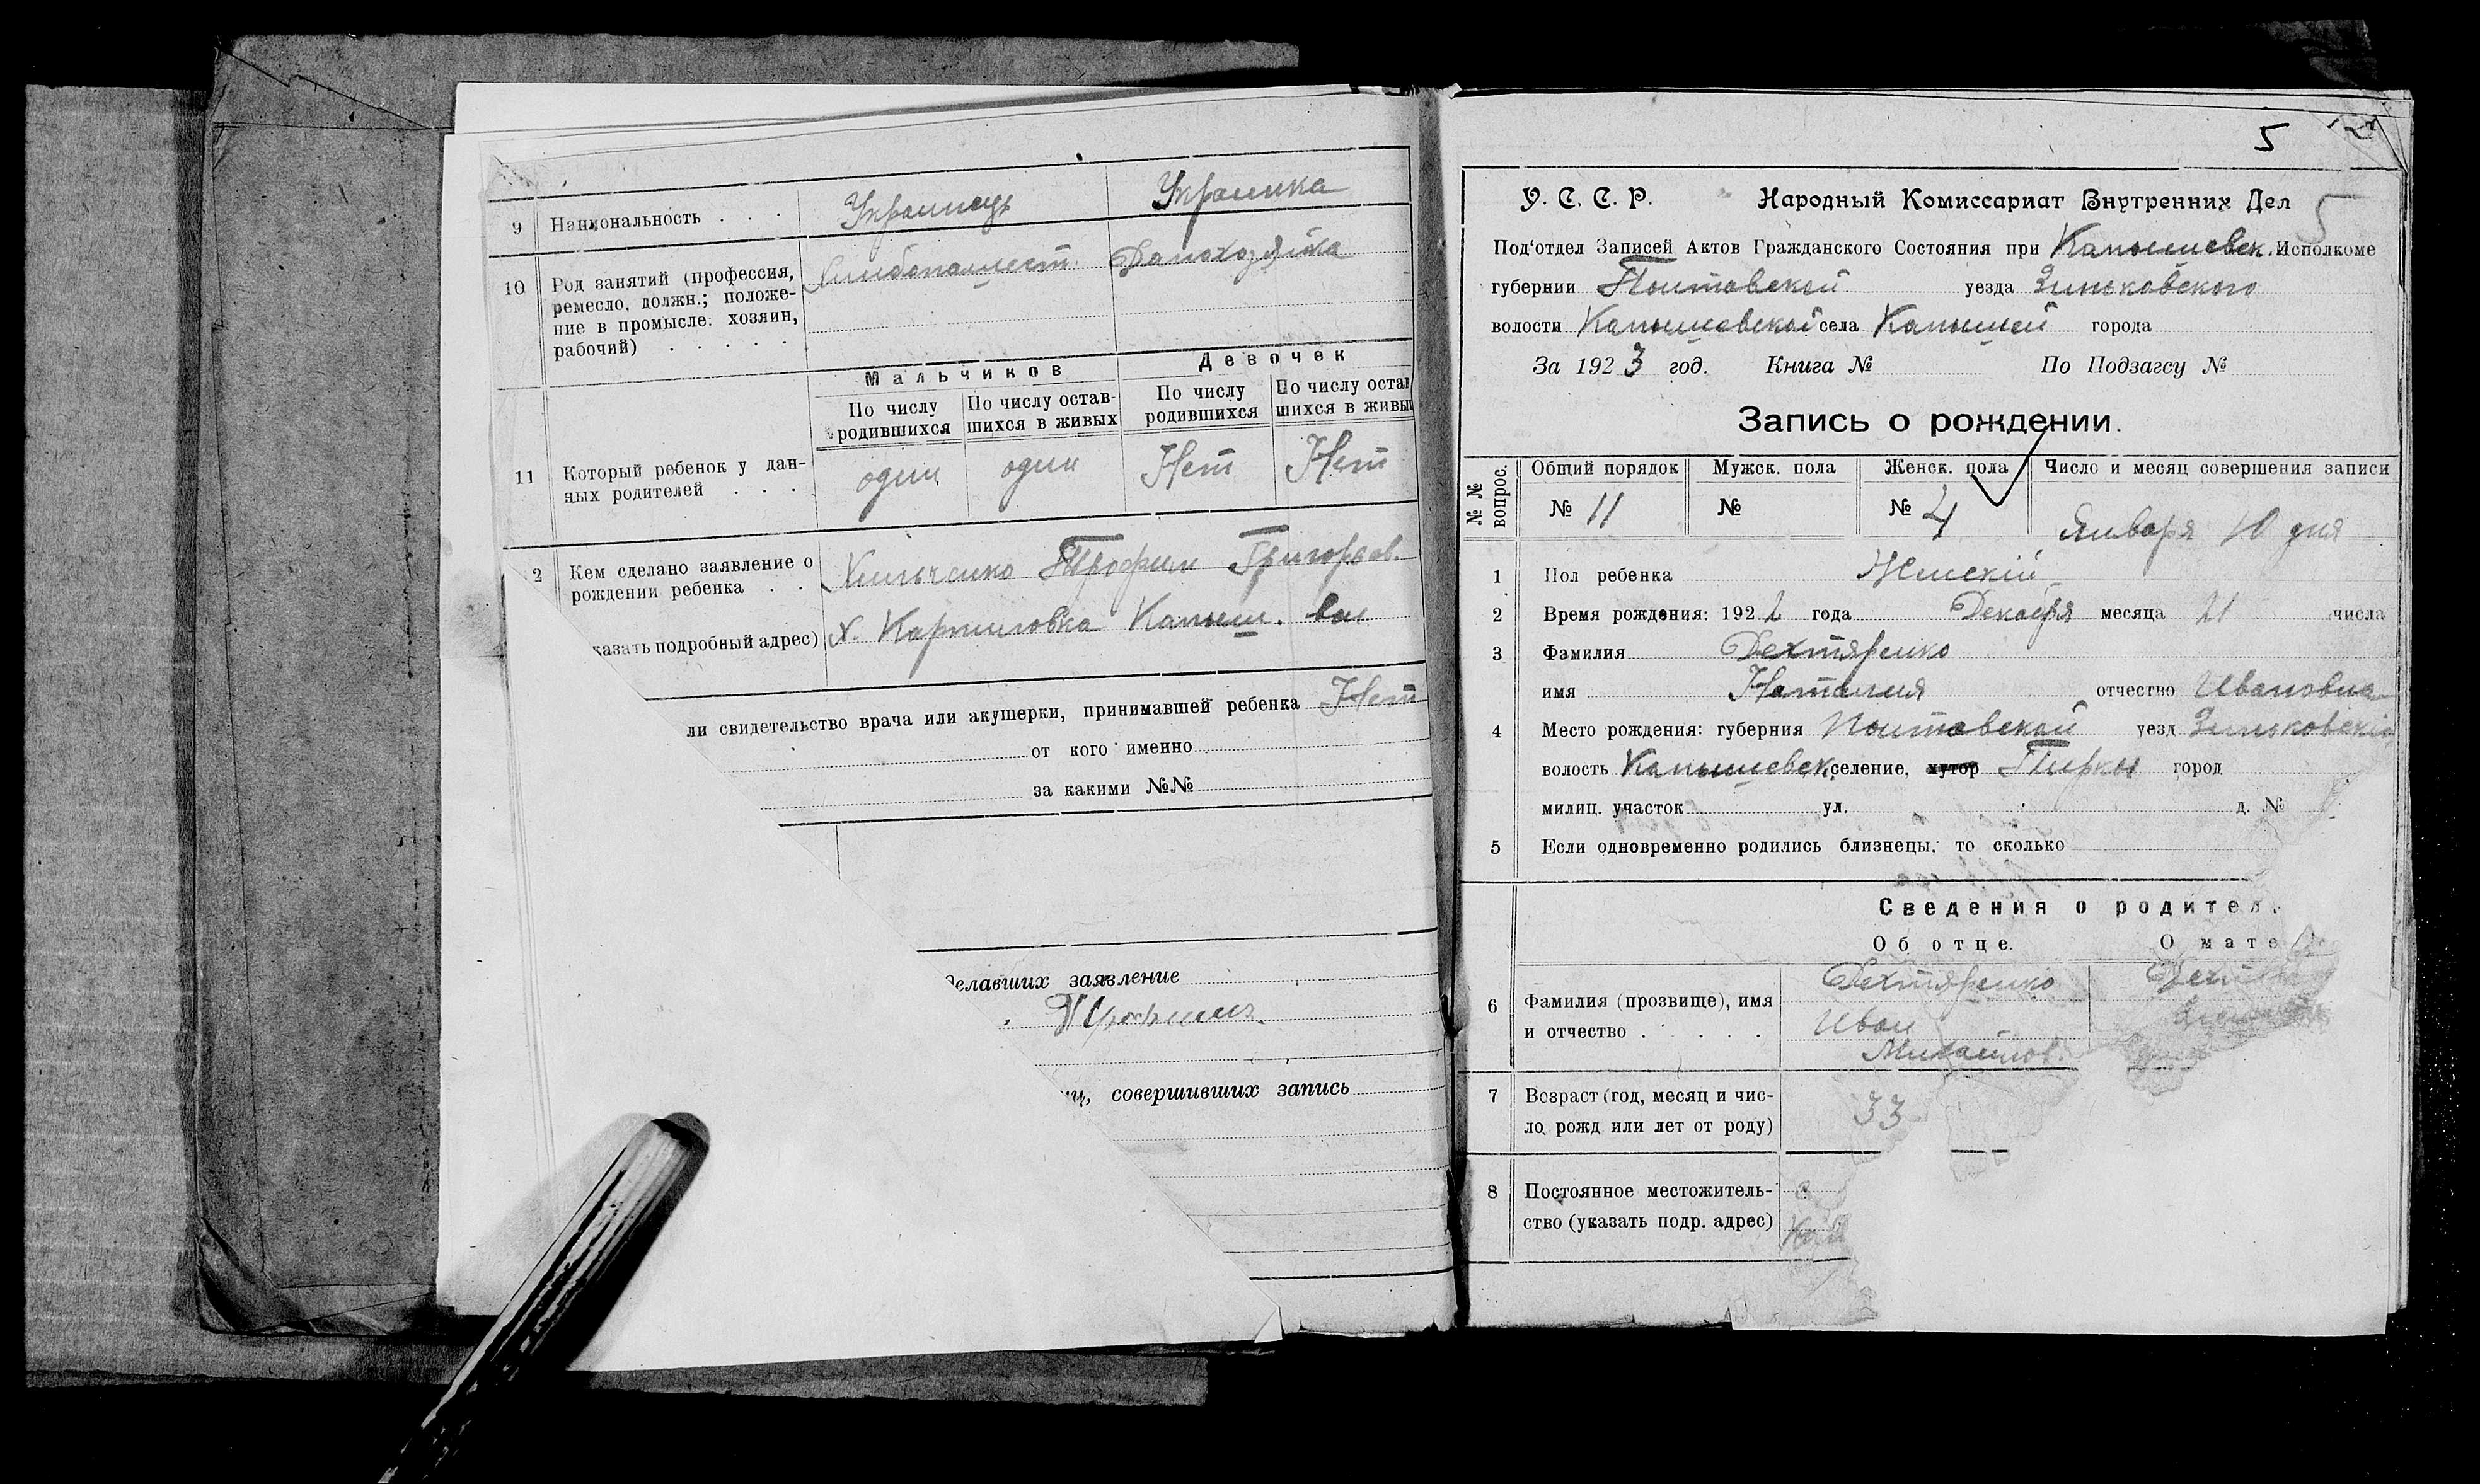 9 Национальность . . . Украинец Украинка
10 Род занятий (профессия, Домохозяйка
ремесло, должн.; положе-
ние в промысле: хозяин,
рабочий) . . . . .
Мальчиков Девочек
По числу родившихся По числу остав-шихся в живых По числу родившихся По числу остав шихся в живы
11 Который ребенок у дан- один один Нет Нет
ных родителей . . .
2 Кем сделано заявление о Трофим Григорьев.
рождении ребенка . .
казать подробный адрес) х. Карпиловка Капыш. вол
ли свидетельство врача или акушерки, принимавшей ребенка Нет
от кого именно
за какими №№
делавших заявление
совершивших запись
5
5
У. С. С. Р. Народный Комиссариат Внутренних Дел
Под'отдел Записей Актов Гражданского Состояния при Капышевск. Исполкоме
губернии Полтавской уезда Зиньковского
волости Капышевской села Капышей города
За 1923 год. Книга № По Подзагсу №
Запись о рождении.
№№ вопрос. Общий порядок Мужск. пола Женск. пола Число и месяц совершения записи
№ 11 № № 4 Января 10 дня
1 Пол ребенка Женский
2 Время рождения: 1922 года Декабря месяца 21 числа
3 Фамилия Дехтяренко
имя Наталия отчество Ивановна
4 Место рождения: губерния Полтавской уезд Зиньковский
волость Капышевск. селение, хутор Пирки город
милиц. участок ул. д. №
5 Если одновременно родились близнецы, то сколько
Сведения о родител
Об отце. О мате
6 Фамилия (прозвище), имя Дехтяренко
и отчество . . . . Иван
Михайлов.
7 Возраст (год, месяц и чис- 33
ло рожд или лет от роду)
8 Постоянное местожитель-
ство (указать подр. адрес)